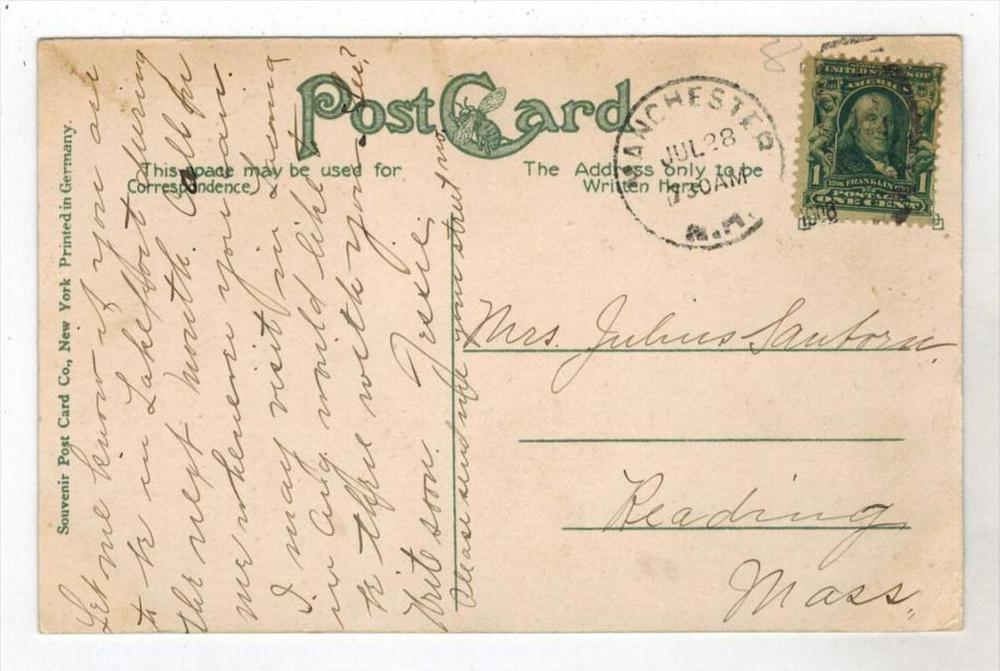 Post Card
This space may be used for
Correspondence
The Address only to be
Written Here
MANCHESTER
JUL 28
730AM
N.H.
1908
UNITED STATES OF
AMERICA
1
1706 FRANKLIN 1790
POSTAGE
ONE CENT
Souvenir Post Card Co., New York Printed in Germany.
Let me know if you are
to be in Lakeport during
the next month. Call for
me whenever you can.
I may visit in Laconia
in Aug would like to
be there with you. See?
Write soon. Texie.
Please send me your street no.
Mrs. Julius Sanborn.
Reading
Mass.